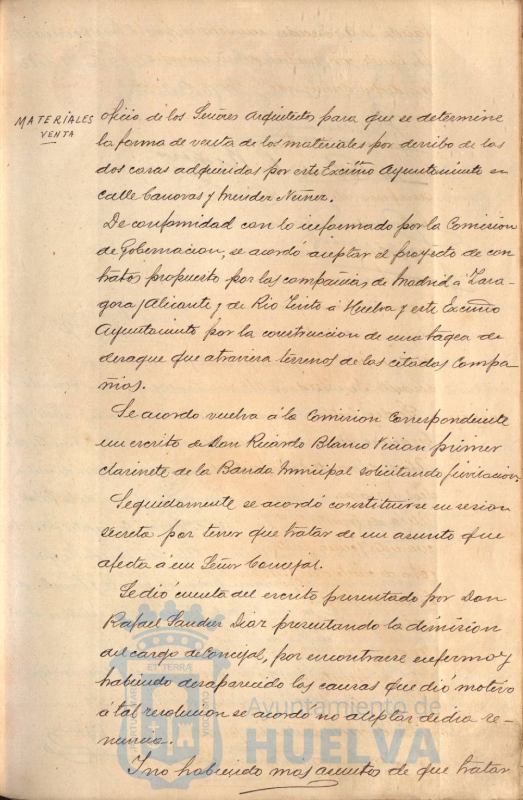 MATERIALES
VENTA
oficio de los Señores Arquitectos para que se determine
la forma de venta de los materiales por derribo de las
dos casas adquiridas por este Excmo Ayuntamiento en
calle Canovas y Mendez Nuñez.
De conformidad con lo informado por la Comision
de Gobernacion, se acordó aceptar el proyecto de con-
tratos propuesto por las compañias de Madrid a Zara-
goza y Alicante y de Rio Tinto á Huelva y este Excmo
Ayuntamiento por la construccion de una tagea de
desague que atraviesa terrenos de las citadas Compa-
ñias.
Se acordo vuelva á la Comision Correspondiente
un escrito de Don Ricardo Blanco primer
clarinete de la Banda Municipal solicitando jubilacion.
Seguidamente se acordó constituirse en sesion
secreta por tener que tratar de un asunto que
afecta á un Señor Concejal.
Se dió cuenta del escrito presentado por Don
Rafael Diaz presentando la dimision
del cargo de Concejal, por encontrarse enfermo y
habiendo desaparecido las causas que dió motivo
a tal resolucion se acordó no aceptar dicha re-
nuncia.
Y no habiendo mas asuntos de que tratar
Ayuntamiento de
HUELVA